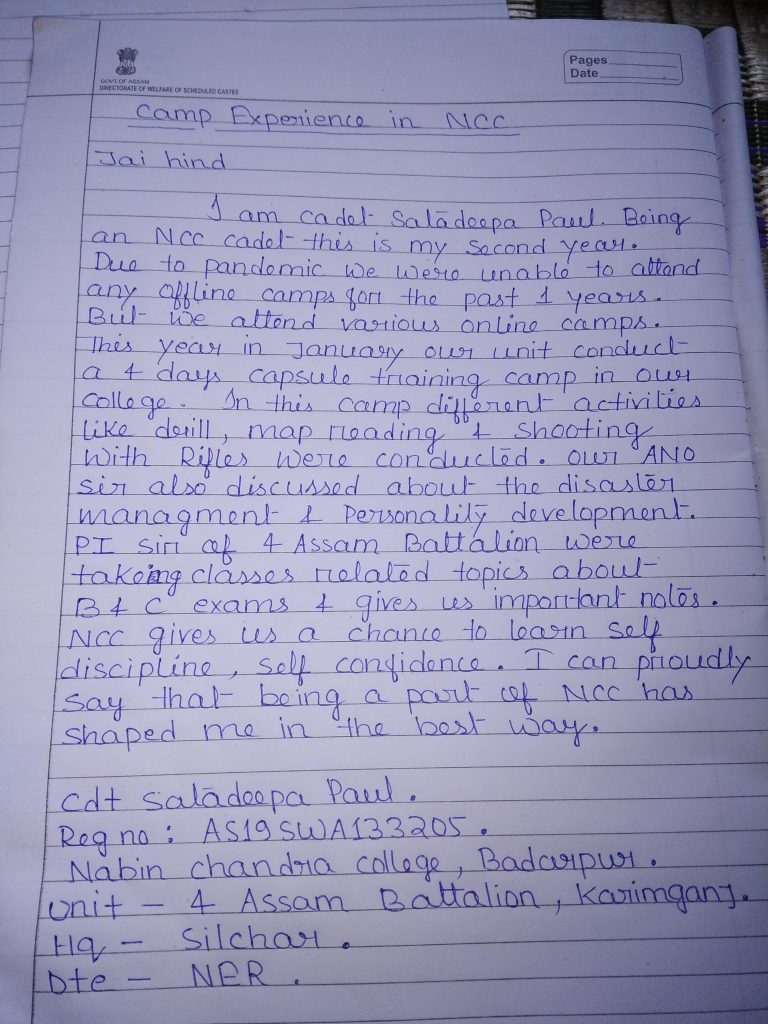 GOVT. OF ASSAM
DIRECTORATE OF WELFARE OF SCHEDULED CASTES
Pages
Date
Camp Experience in NCC
Jai hind
I am cadet Saladeepa Paul. Being
an NCC cadet this is my second year.
Due to pandemic we were unable to attend
any offline camps for the past 1 years.
But we attend various online camps.
This year in January our unit conduct
a 4 days capsule training camp in our
college. In this camp different activities
like drill, map reading & shooting
with Rifles were conducted. our ANO
sir also discussed about the disaster
managment & Personality development.
PI sir of 4 Assam Battalion were
takeing classes related topics about
B & C exams & gives us important notes.
NCC gives us a chance to learn self
discipline, self confidence. I can proudly
say that being a part of NCC has
shaped me in the best way.
Cdt Saladeepa Paul.
Reg no : AS19SWA133205.
Nabin chandra college, Badarpur.
Unit - 4 Assam Battalion, Karimganj.
Hq - Silchar.
Dte - NER.